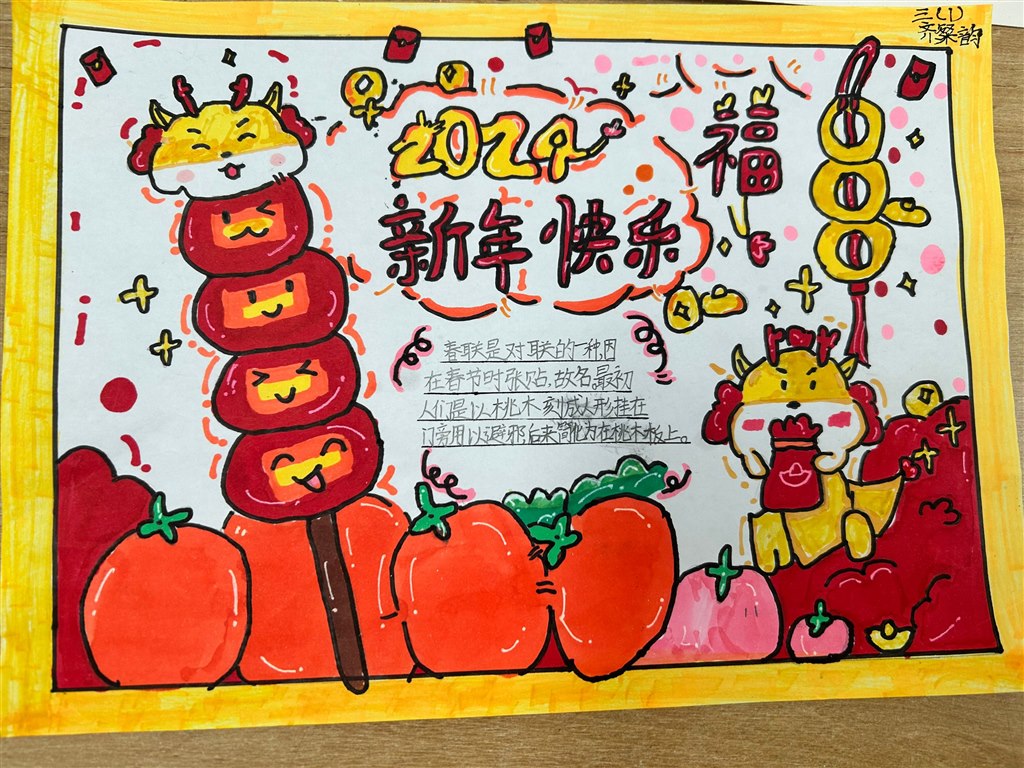 三(1)
齐桑韵
2024
福
新年快乐
春联是对联的一种,因
在春节时张贴,故名。最初
人们是以桃木刻成人形挂在
门旁用以避邪后来简化为在桃木板上。